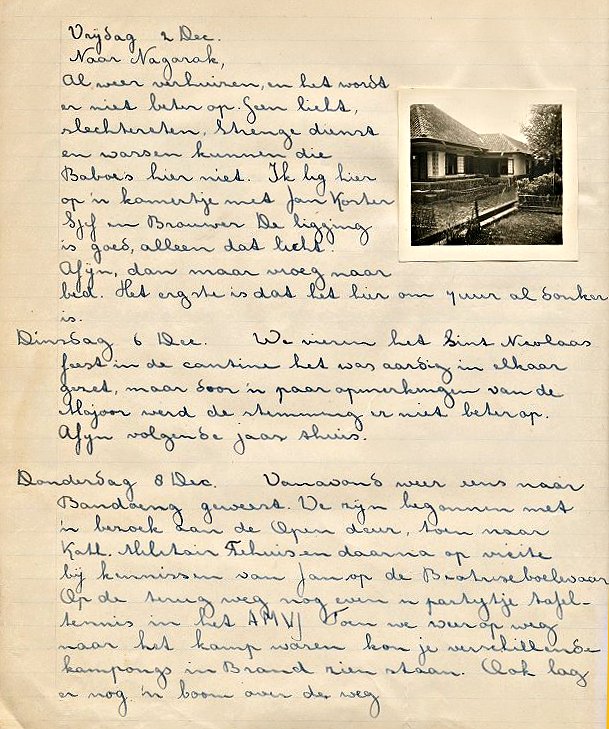 Vrijdag 2 Dec.
Naar Nagarak,
Al weer verhuizen, en het wordt
er niet beter op. Geen licht,
slechter eten, Strenge dienst
en wassen kunnen die
Baboes hier niet. Ik lig hier
op 'n kamertje met Jan Korter
Sjef en Brouwer De ligging
is goed, alleen dat licht.
Afijn, dan maar vroeg naar
bed. Het ergste is dat het hier om 7 uur al donker
is.
Dinsdag 6 Dec. We vieren het Sint Nicolaas
feest in de cantine het was aardig in elkaar
gezet, maar door 'n paar opmerkingen van de
Majoor werd de stemming er niet beter op.
Afijn volgende jaar thuis.
Donderdag 8 Dec. Vanavond weer eens naar
Bandoeng geweest. We zijn begonnen met
'n bezoek aan de Open deur, toen naar
Kath. Militair Tehuis en daarna op visite
bij kennissen van Jan op de Beatrixboelevaar
Op de terug weg nog even 'n partijtje tafel-
tennis in het AMVJ Toen we weer op weg
naar het kamp waren kon je verschillende
kampongs in Brand zien staan. Ook lag
er nog 'n boom over de weg